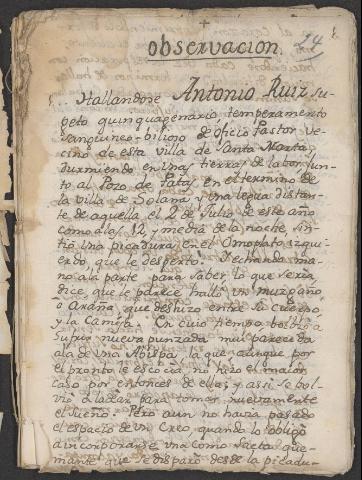 +
Observacion.
Hallandose Antonio Ruiz su-
geto quinquagenario, temperamento
sanguineo-bilioso de oficio Pastor Ve-
cino de esta villa de Santa Marta
durmiendo en unas tierras de labor jun-
to al Pozo de Patas en el termino de
la villa de Solana y una legua distan-
te de aquella el 2 de Julio de este año
como alas 12, y media de la noche, sin-
tió una picadura en el Omoplato izqui-
erdo, que le despertó. Y echando ma-
no ala parte para saber lo que seria,
dice, que le parece halló un murgaño
o Araña, que deshizo entre su Cuerpo,
y la Camisa. En cuio tiempo, bolbio a
sufrir nueva punzada mui parecida
ala de una Abispa, la que aunque por
el pronto le escocia, no hizo el maior
caso por entonces de ellas, y assi se bol-
vio a ladar para tomar nuevamente
el sueño. Pero aun no havia pasado
el espacio de un Creo, quando le obligó
a incorporarse una como Saeta que-
mante que se disparó desde la picadu-